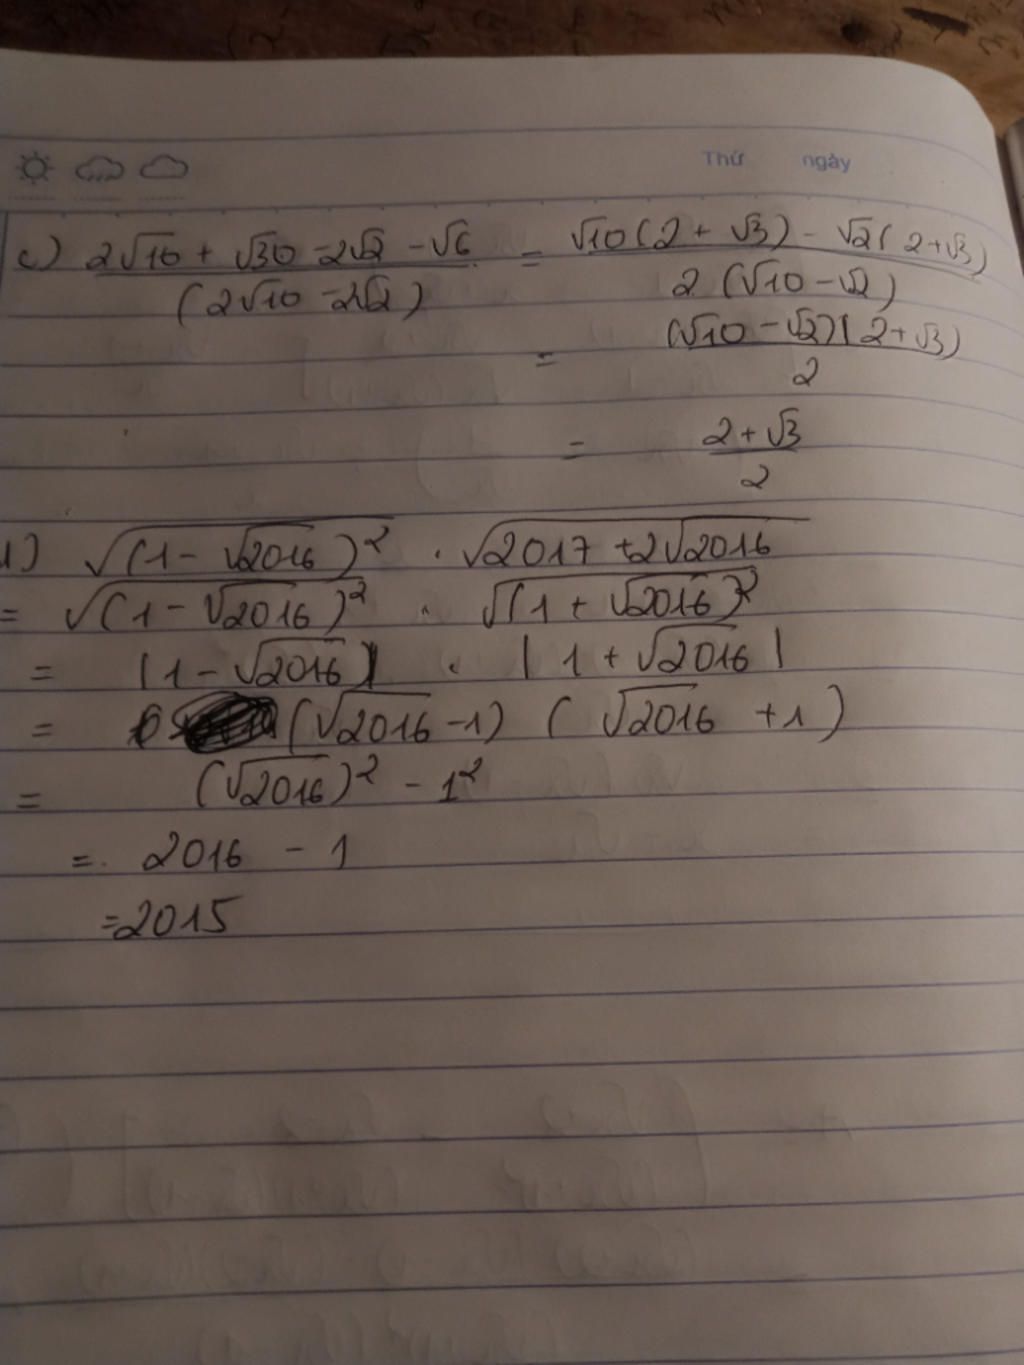 Thứ ngày
c) (2√10 + √30 - 2√2 - √6) / (2√10 - 2√2) = (√10(2 + √3) - √2(2+√3)) / (2(√10 - √2))
= (√10 - √2)(2+√3) / 2
= (2+√3) / 2
1) √((1-√2016)²) . √(2017 + 2√2016)
= √((1-√2016)²) . √((1+√2016)²)
= |1-√2016| . |1+√2016|
= (√2016-1) (√2016 +1)
= (√2016)² - 1²
= 2016 - 1
=2015